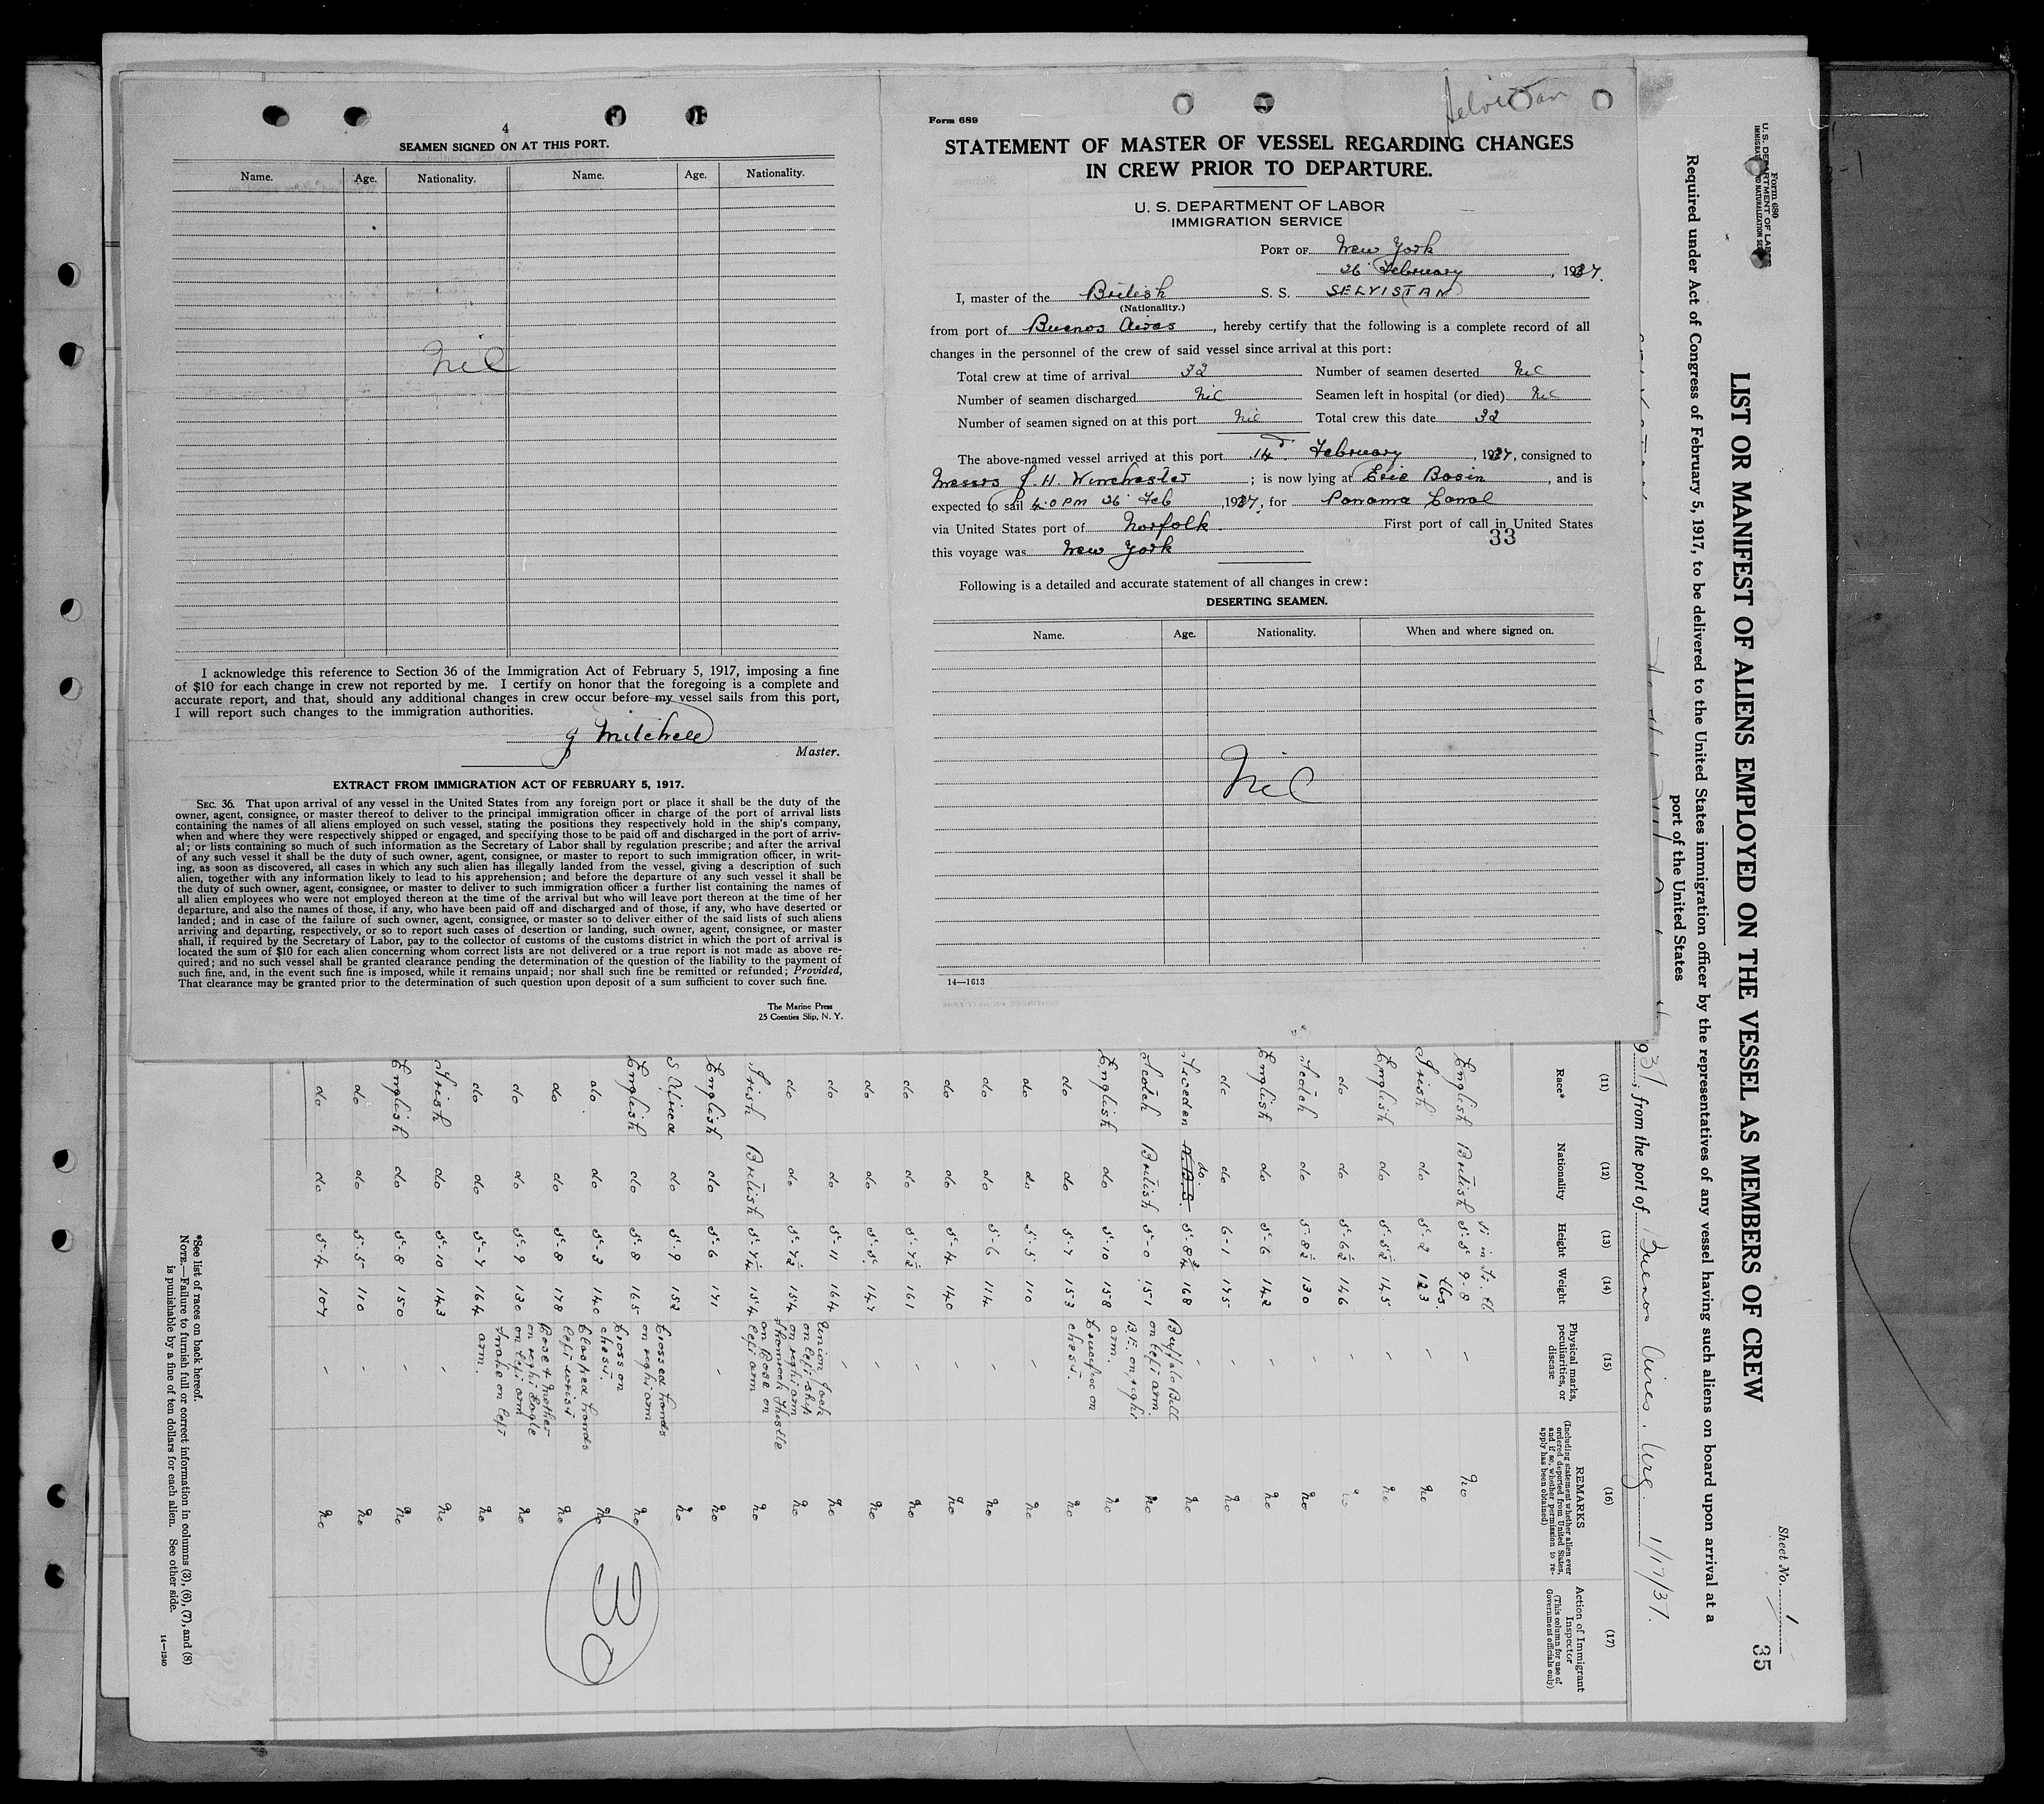 4
SEAMEN SIGNED ON AT THIS PORT.
Name. Age. Nationality. Name. Age. Nationality.
Nil
I acknowledge this reference to Section 36 of the Immigration Act of February 5, 1917, imposing a fine
of $10 for each change in crew not reported by me. I certify on honor that the foregoing is a complete and
accurate report, and that, should any additional changes in crew occur before my vessel sails from this port,
I will report such changes to the immigration authorities.
J Mitchell
Master.
EXTRACT FROM IMMIGRATION ACT OF FEBRUARY 5, 1917.
SEC. 36. That upon arrival of any vessel in the United States from any foreign port or place it shall be the duty of the
owner, agent, consignee, or master thereof to deliver to the principal immigration officer in charge of the port of arrival lists
containing the names of all aliens employed on such vessel, stating the positions they respectively hold in the ship's company,
when and where they were respectively shipped or engaged, and specifying those to be paid off and discharged in the port of arriv-
al; or lists containing so much of such information as the Secretary of Labor shall by regulation prescribe; and after the arrival
of any such vessel it shall be the duty of such owner, agent, consignee, or master to report to such immigration officer, in writ-
ing, as soon as discovered, all cases in which any such alien has illegally landed from the vessel, giving a description of such
alien, together with any information likely to lead to his apprehension; and before the departure of any such vessel it shall be
the duty of such owner, agent, consignee, or master to deliver to such immigration officer a further list containing the names of
all alien employees who were not employed thereon at the time of the arrival but who will leave port thereon at the time of her
departure, and also the names of those, if any, who have been paid off and discharged and of those, if any, who have deserted or
landed; and in case of the failure of such owner, agent, consignee, or master so to deliver either of the said lists of such aliens
arriving and departing, respectively, or so to report such cases of desertion or landing, such owner, agent, consignee, or master
shall, if required by the Secretary of Labor, pay to the collector of customs of the customs district in which the port of arrival is
located the sum of $10 for each alien concerning whom correct lists are not delivered or a true report is not made as above re-
quired; and no such vessel shall be granted clearance pending the determination of the question of the liability to the payment of
such fine, and, in the event such fine is imposed, while it remains unpaid; nor shall such fine be remitted or refunded; Provided,
That clearance may be granted prior to the determination of such question upon deposit of a sum sufficient to cover such fine.
The Marine Press
25 Coenties Slip, N. Y.
Selvistan
Form 689
STATEMENT OF MASTER OF VESSEL REGARDING CHANGES
IN CREW PRIOR TO DEPARTURE.
U. S. DEPARTMENT OF LABOR
IMMIGRATION SERVICE
PORT OF New York
26 February, 1937.
I, master of the British S. S. SELVISTAN
(Nationality.)
from port of Buenos Aires, hereby certify that the following is a complete record of all
changes in the personnel of the crew of said vessel since arrival at this port:
Total crew at time of arrival 32 Number of seamen deserted Nil
Number of seamen discharged Nil Seamen left in hospital (or died) Nil
Number of seamen signed on at this port Nil Total crew this date 32
The above-named vessel arrived at this port 14 February, 1937, consigned to
Messrs J. H. Winchester; is now lying at Erie Basin, and is
expected to sail 4.0 PM 26 Feb, 1937, for Panama Canal
via United States port of Norfolk. First port of call in United States
33
this voyage was New York
Following is a detailed and accurate statement of all changes in crew:
DESERTING SEAMEN.
Name. Age. Nationality. When and where signed on.
Nil
14—1613
Form 680
U. S. DEPARTMENT OF LABOR
Sheet No. 1
35
LIST OR MANIFEST OF ALIENS EMPLOYED ON THE VESSEL AS MEMBERS OF CREW
Required under Act of Congress of February 5, 1917, to be delivered to the United States immigration officer by the representatives of any vessel having such aliens on board upon arrival at a
port of the United States
, from the port of Buenos Aires. Arg. 1/17/37.
(11) (12) (13) (14) (15) (16) (17)
Race* Nationality Height Weight Physical marks, peculiarities, or disease REMARKS (Including statement whether alien ever ordered deported from United States, and if so, whether permission to re-apply has been obtained) Action of Immigrant Inspector (This column for use of Government officials only)
English British 5-5 9-8 - No
Irish do 5-2 lbs. 123 - No
English do 5-5½ 145 - No
do do 5-6½ 146 -
Scotch do 5-8½ 130 - No
English do 5-6 142 - No
do do 6-1 175 - No
Sweden do N.B.S. 5-8¾ 168 Buffalo Bill on left arm. No
Scotch British 5-0 151 B.E. on right arm. No
English do 5-10 158 Crucifix on chest. No
do do 5-7 153 No
do do 5-5 110 - No
do do 5-6 114 - No
do do 5-4 140 - No
do do 5-7½ 161 - No
do do 5-5 147 - No
do do 5-11 164 Union Jack on left ship on right arm No
do do 5-7½ 154 Shamrock Thistle on Rose on left arm No
Irish British 5-7¼ 154 No
English do 5-6 171 - No
S Africa do 5-9 152 Crossed hands on right arm No
English do 5-8 165 Cross on chest. No
do do 5-3 140 Clasped hands left wrist No
do do 5-8 178 Rose & Mother on right Eagle on left arm No
do do 5-9 130 Snake on left arm. No
do do 5-7 164 No
Irish do 5-10 143 - No
English do 5-8 150 - No
do do 5-5 110 - No
do do 5-4 107 - No
30
*See list of races on back hereof.
NOTE.—Failure to furnish full or correct information in columns (3), (6), (7), and (8)
is punishable by a fine of ten dollars for each alien. See other side.
14—1240